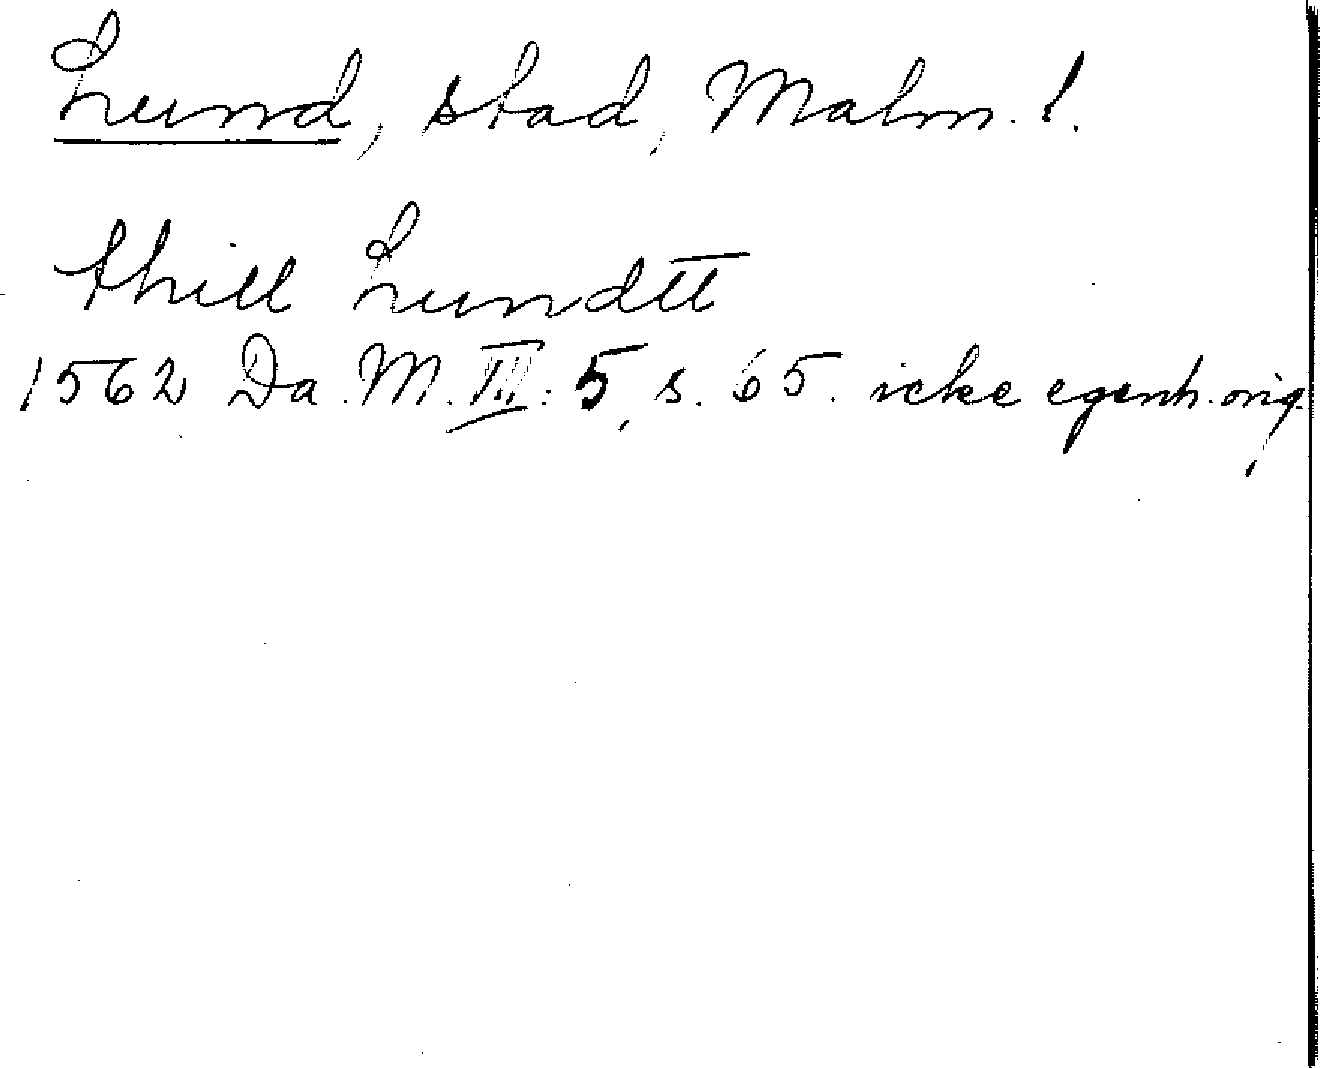 Lund, stad, Malm. l.
thill Lundtt
1562 Da. M. III: 5, s. 65. icke egenh. orig.